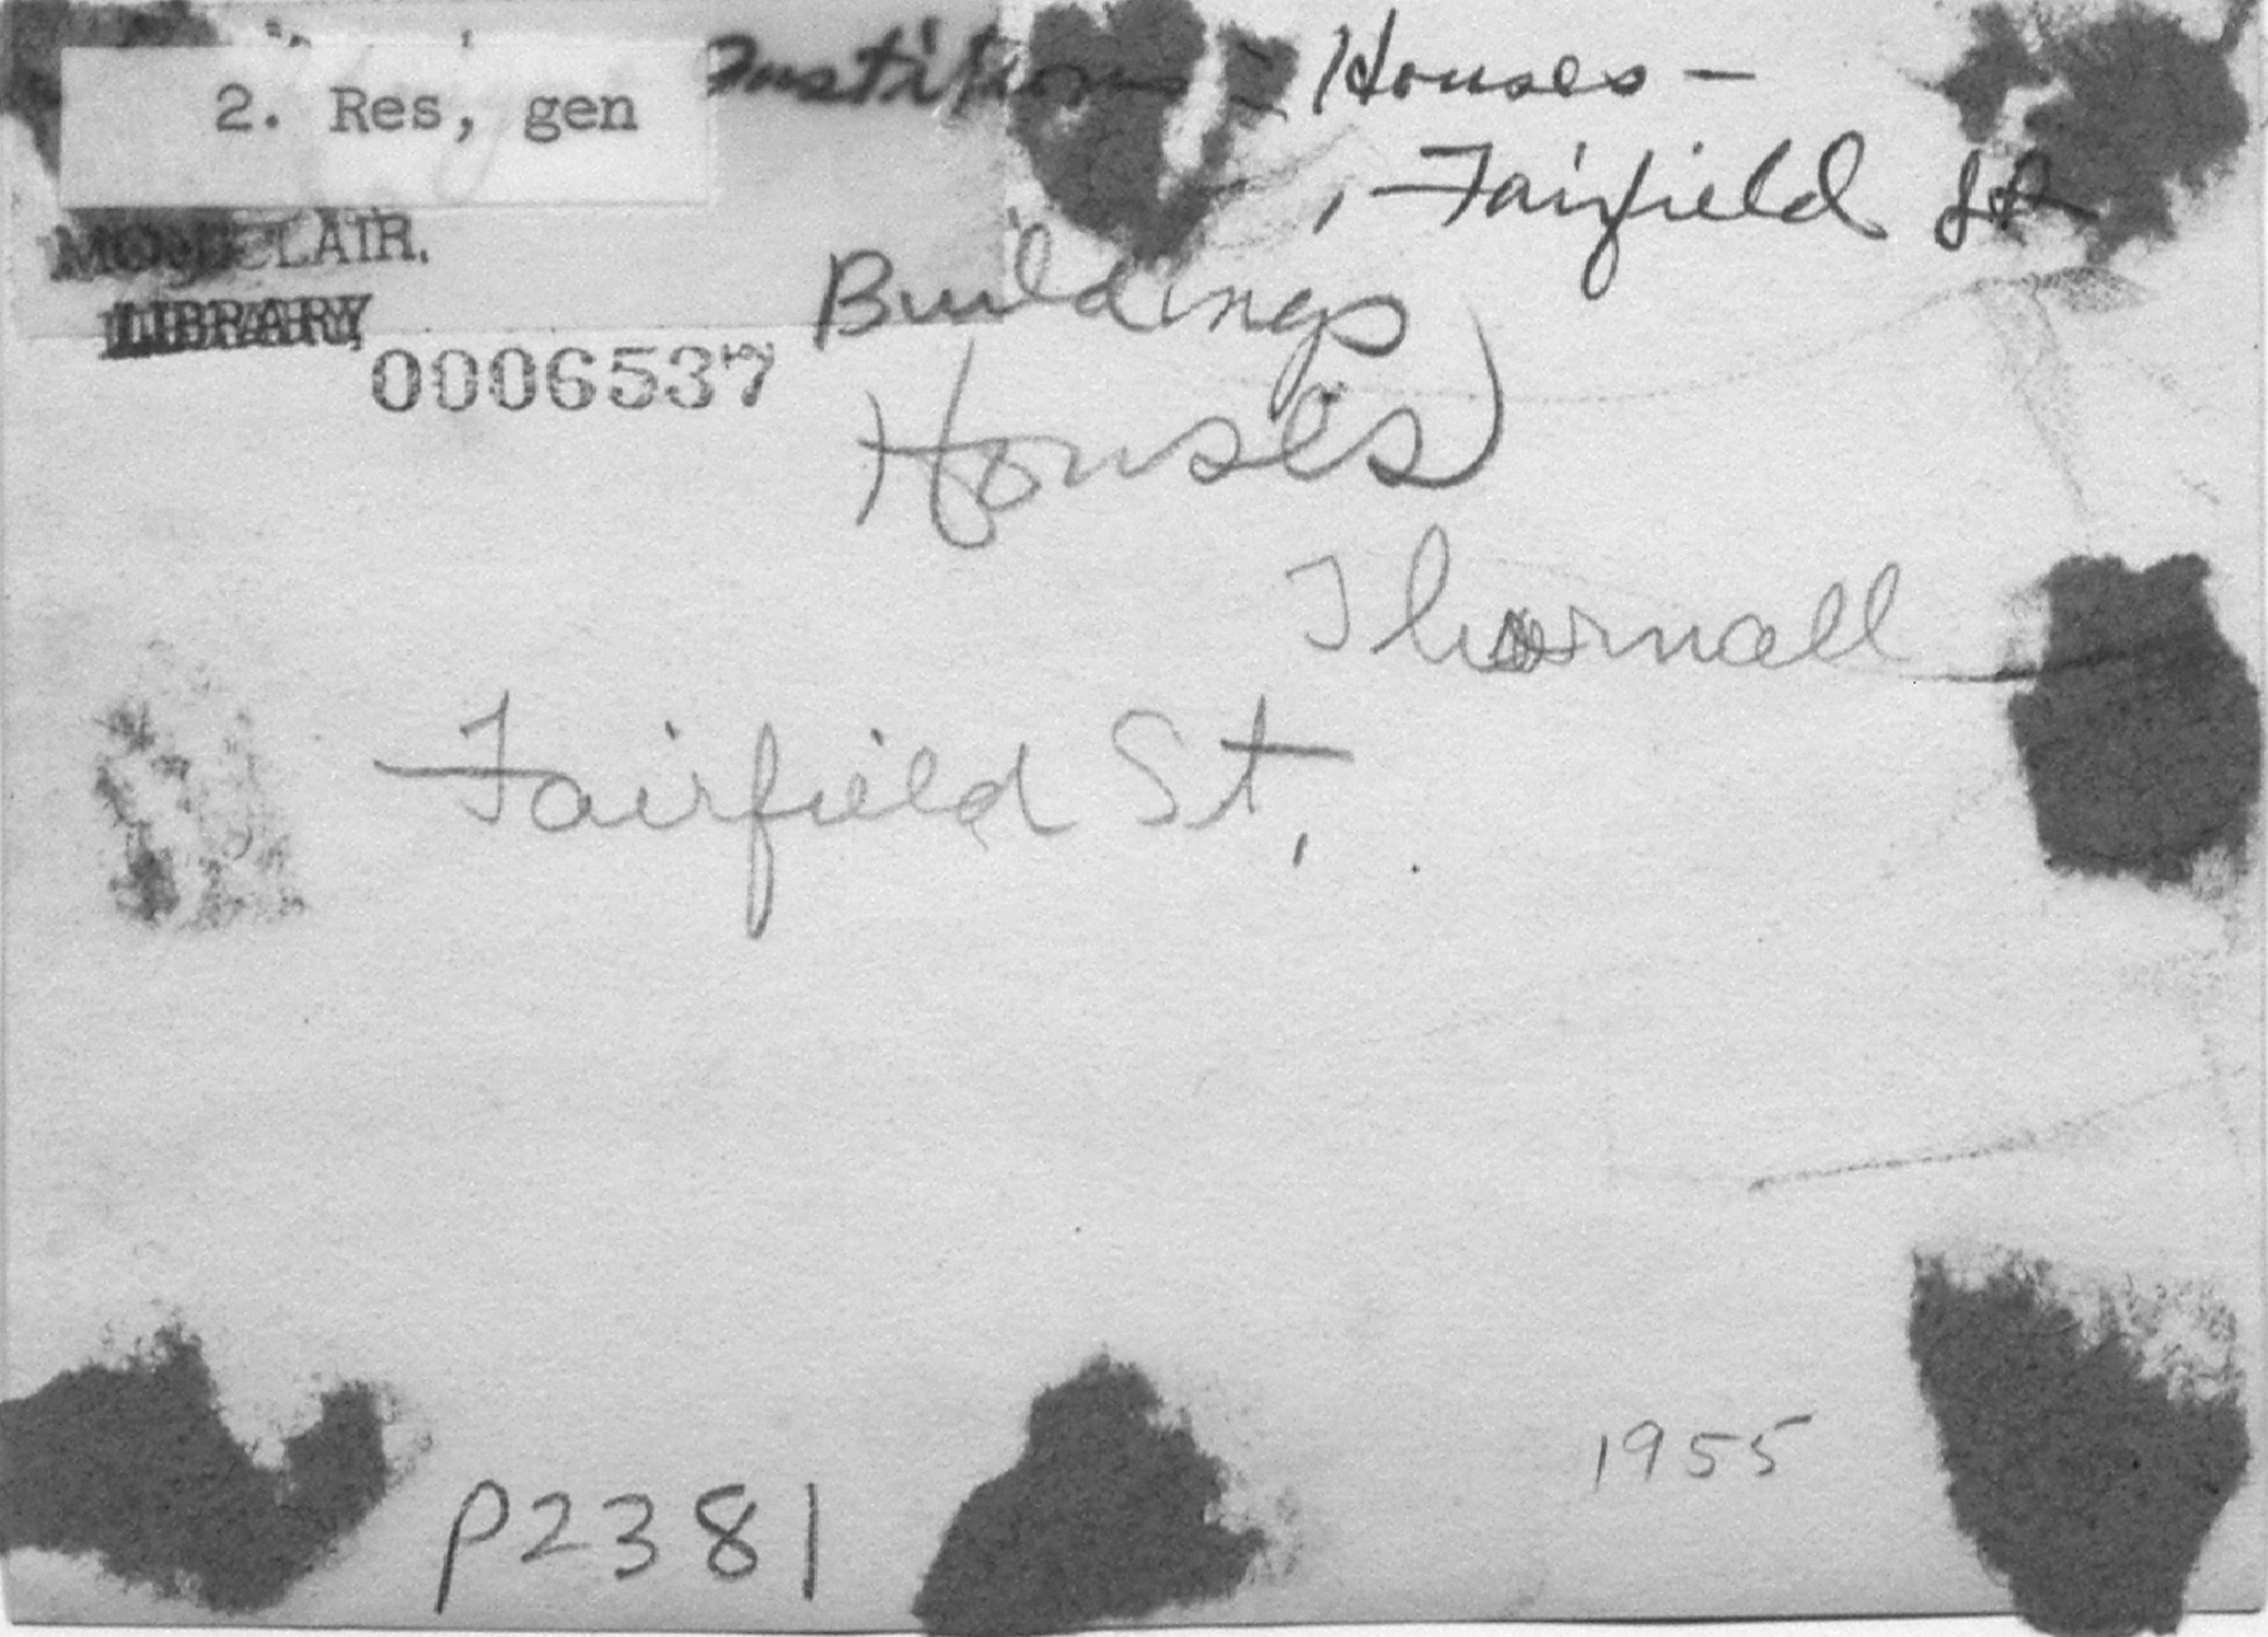 2. Res, gen
Institutions - Houses -
Fairfield St
MONTCLAIR.
LIBRARY
0006537
Buildings
Houses
Thornall
Fairfield St.
P2381
1955